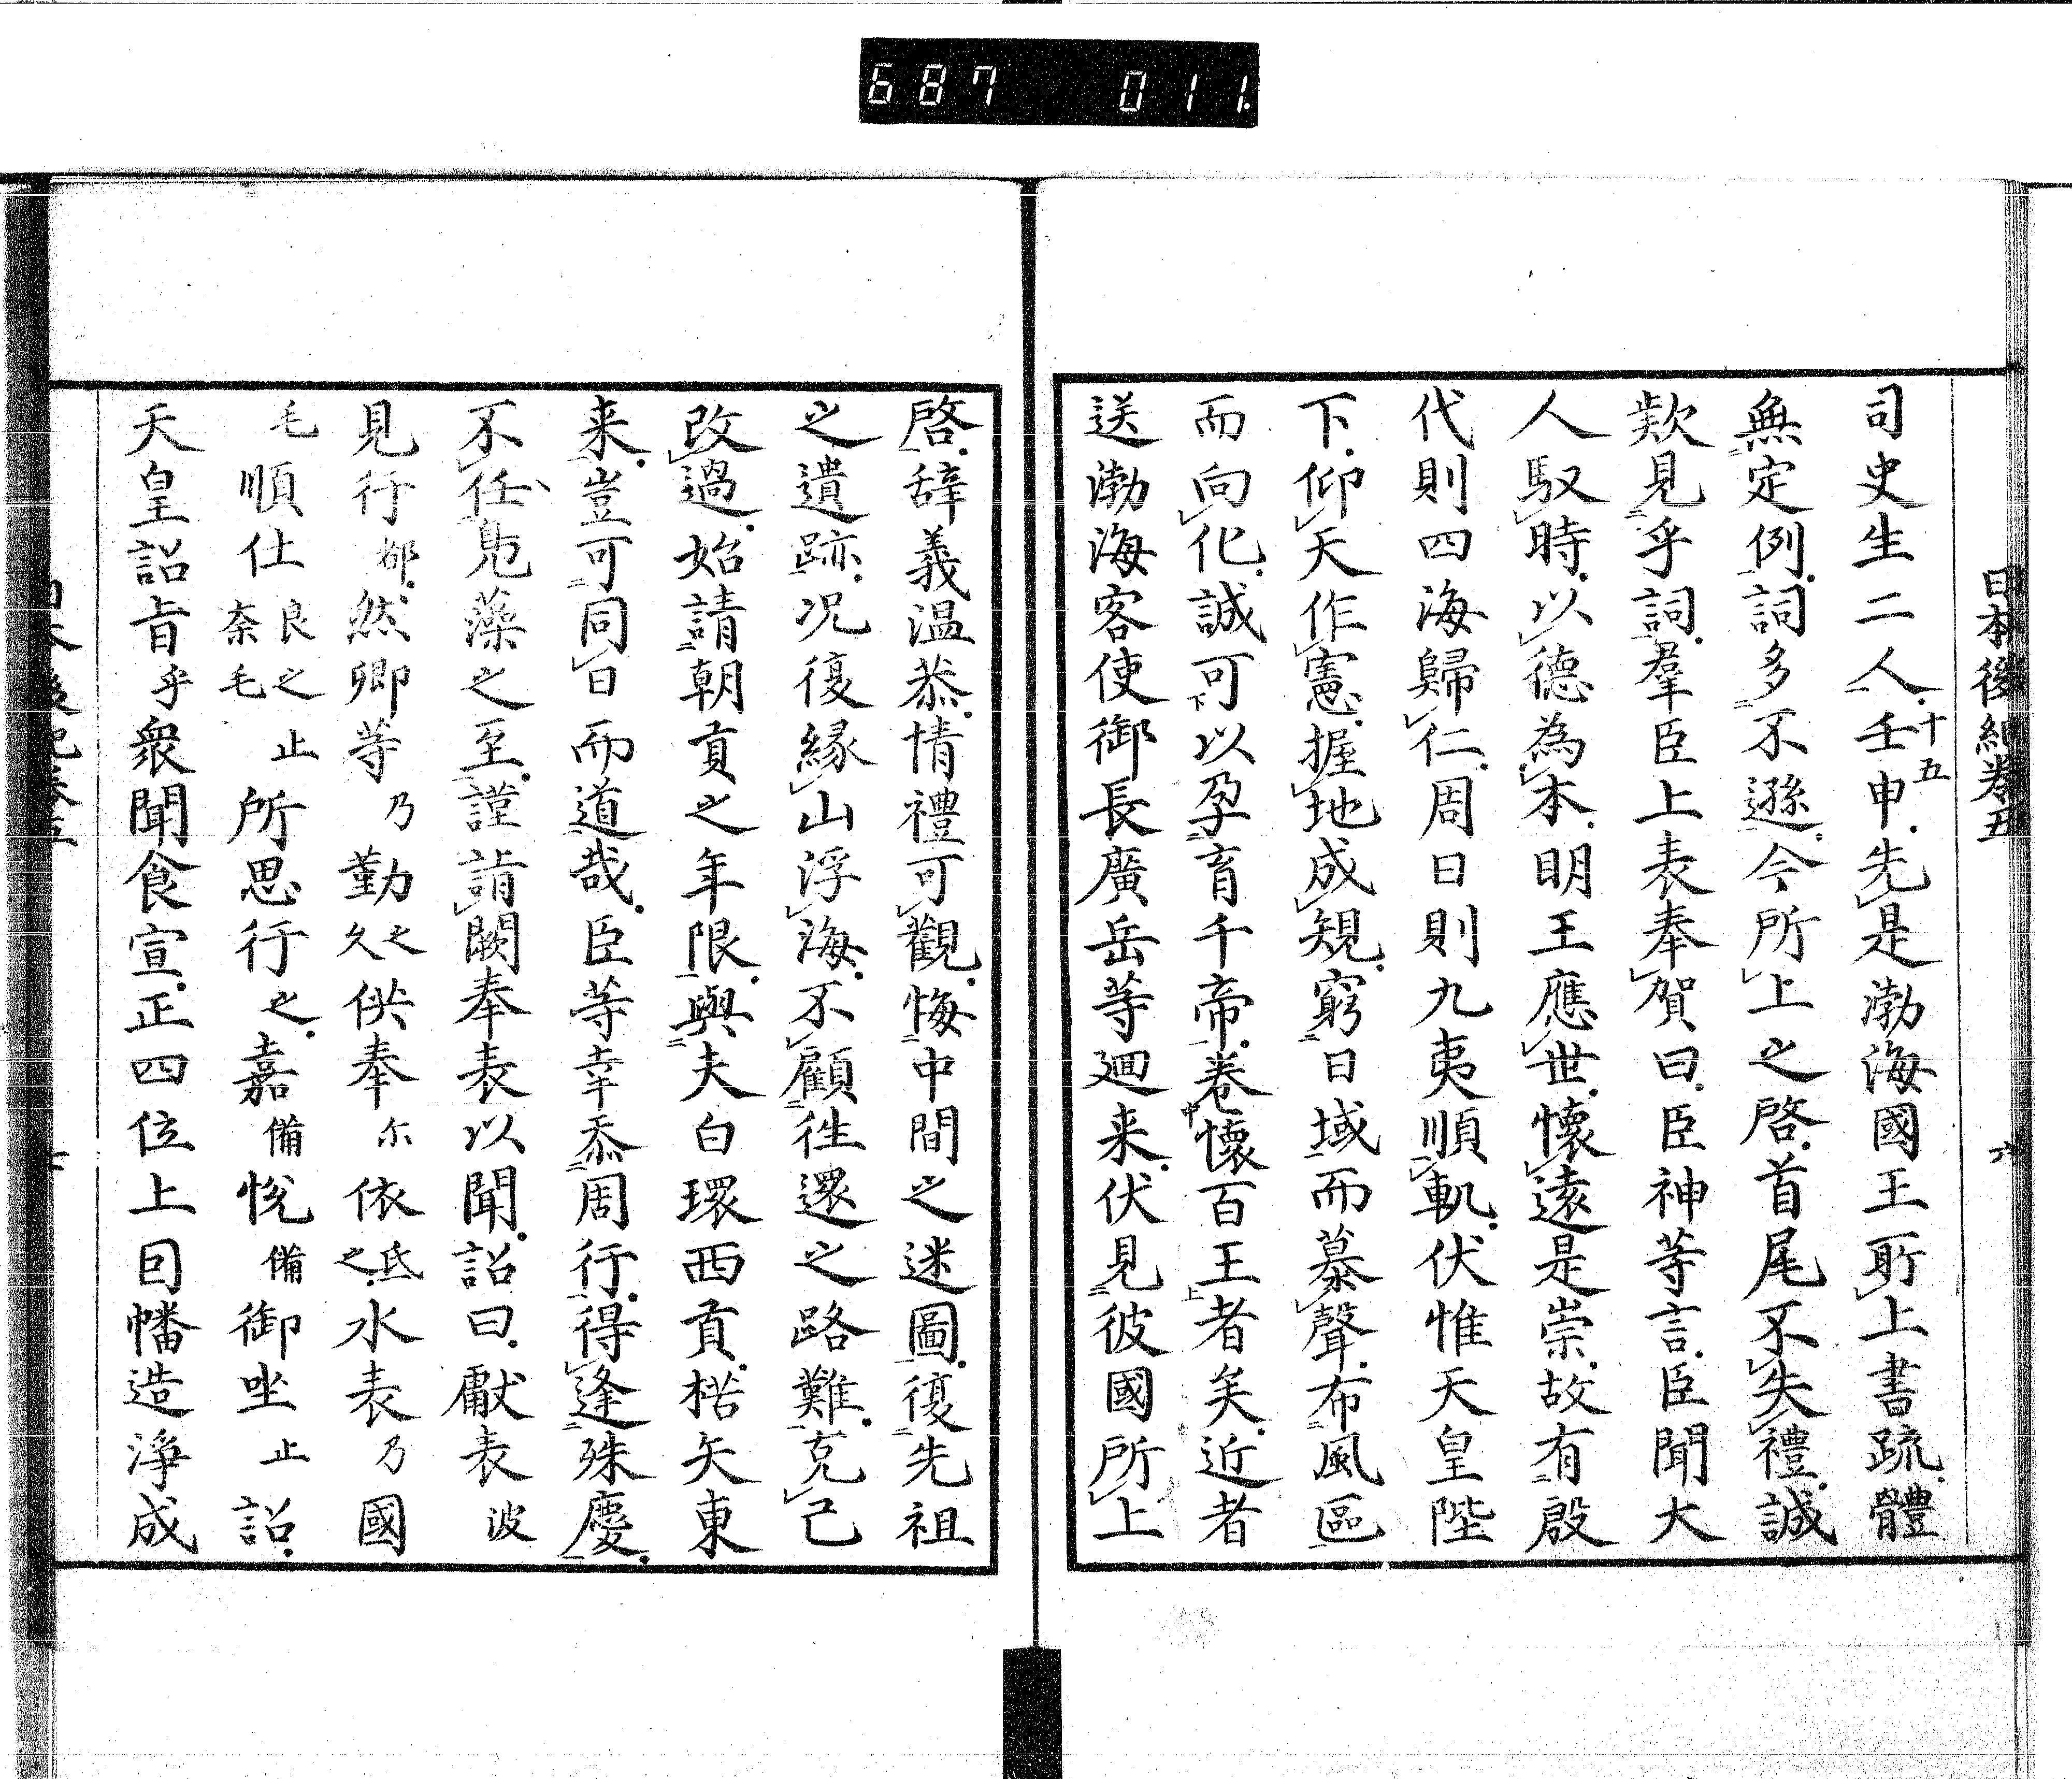 687 011.
日本後紀卷五 六
司史生二人壬申十五先是渤海國王所上書疏體
無定例詞多不遜今所上之啓首尾不失禮誠
款見乎詞羣臣上表奉賀曰臣神等言臣聞大
人馭時以德為本明王應世懷遠是崇故有殷
代則四海歸仁周日則九夷順軌伏惟天皇陛
下仰天作憲握地成規窮日域而慕聲布風區
而向化誠可以孕育千帝卷懷百王者矣近者
送渤海客使御長廣岳等廻来伏見彼國所上
啓辞義温恭情禮可觀悔中間之迷圖復先祖
之遺跡况復緣山浮海不顧徃還之路難克己
改過始請朝貢之年限與夫白環西貢楛矢東
来豈可同日而道哉臣等幸忝周行得逢殊慶
不任鳧藻之至謹詣闕奉表以聞詔曰獻表波
見行都然卿等乃勤之久供奉尓依氐之水表乃國
毛順仕良之奈毛止所思行之嘉備悅備御坐止詔
天皇詔旨乎衆聞食宣正四位上因幡造淨成
日本後紀卷五 七